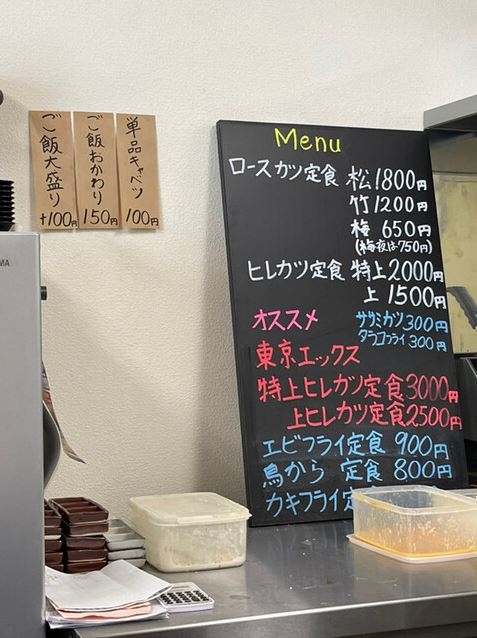 ご飯大盛り
+100円
ご飯おかわり
150円
単品キャベツ
100円
Menu
ロースカツ定食 松1800円
竹1200円
梅 650円
(梅夜は750円)
ヒレカツ定食 特上2000円
上 1500円
オススメ ササミカツ300円
タラコフライ300円
東京エックス
特上ヒレカツ定食3000円
上ヒレカツ定食2500円
エビフライ定食 900円
鳥から 定食 800円
カキフライ定